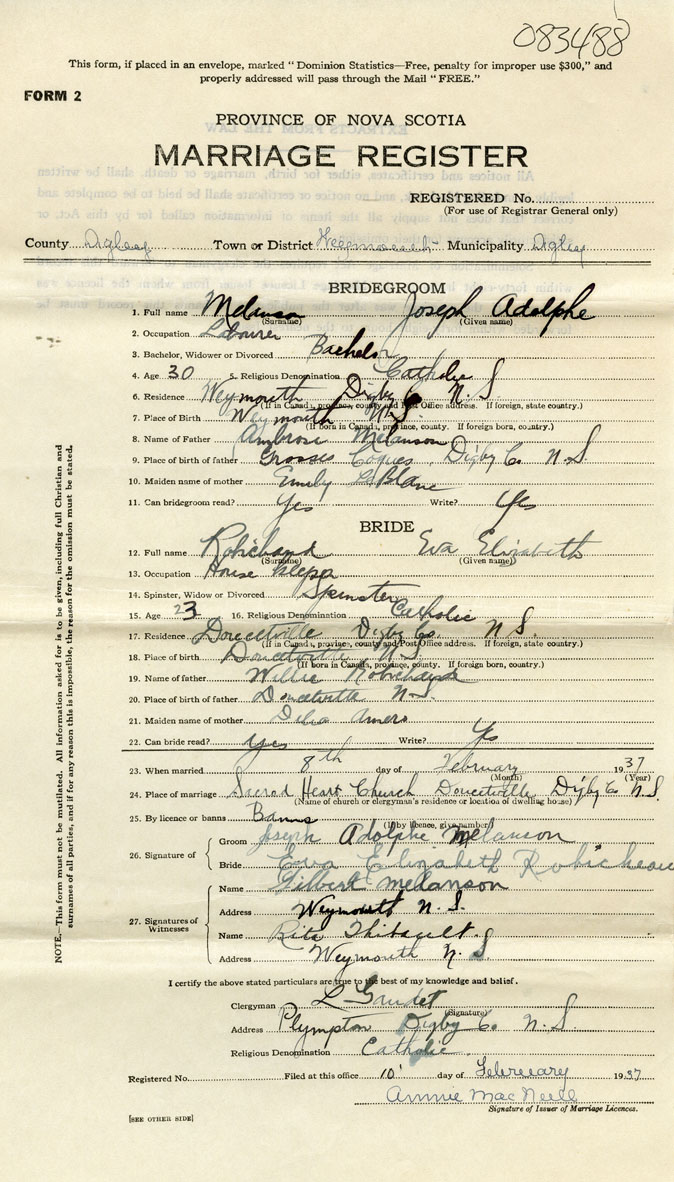 083488
This form, if placed in an envelope, marked "Dominion Statistics—Free, penalty for improper use $300," and
properly addressed will pass through the Mail "FREE."
FORM 2
PROVINCE OF NOVA SCOTIA
MARRIAGE REGISTER
REGISTERED No.
(For use of Registrar General only)
County Digby Town or District Weymouth Municipality Digby
BRIDEGROOM
1. Full name Melanson Joseph Adolphe
(Surname) (Given name)
2. Occupation Labourer
3. Bachelor, Widower or Divorced Bachelor
4. Age 30 5. Religious Denomination Catholic
6. Residence Weymouth Digby Co N.S
(If in Canada, province, county and Post Office address. If foreign, state country.)
7. Place of Birth Weymouth N.S
(If born in Canada, province, county. If foreign born, country.)
8. Name of Father Ambrose Melanson
9. Place of birth of father Grosses Coques, Digby Co N.S.
10. Maiden name of mother Emily LeBlanc
11. Can bridegroom read? Yes Write? Yes
BRIDE
12. Full name Robichaud Eva Elizabeth
(Surname) (Given name)
13. Occupation House keeper
14. Spinster, Widow or Divorced Spinster
15. Age 23 16. Religious Denomination Catholic
17. Residence Doucetville Digby Co. N S.
(If in Canada, province, county and Post Office address. If foreign, state country.)
18. Place of birth Doucetville N.S.
(If born in Canada, province, county. If foreign born, country.)
19. Name of father Willie
20. Place of birth of father Doucetville N.S.
21. Maiden name of mother Delia Amero
22. Can bride read? yes Write? Yes
23. When married 8th day of February 1937
(Month) (Year)
24. Place of marriage Sacred Heart Church Doucetville Digby Co N.S.
(Name of church or clergyman's residence or location of dwelling house)
25. By licence or banns Banns
(If by licence, give number)
26. Signature of
Groom Joseph Adolphe Melanson
Bride Eva Elizabeth Robicheau
27. Signatures of Witnesses
Name Gilbert melanson
Address Weymouth N. S.
Name Rita Thibault.
Address Weymouth N. S
I certify the above stated particulars are true to the best of my knowledge and belief.
Clergyman L Gaudet
(Signature)
Address Plympton Digby Co. N. S.
Religious Denomination Catholic
Registered No. Filed at this office 10' day of February 1937
Annie MacNeill
Signature of Issuer of Marriage Licences.
[SEE OTHER SIDE]
NOTE.—This form must not be mutilated. All information asked for is to be given, including full Christian and
surnames of all parties, and if for any reason this is impossible, the reason for the omission must be stated.